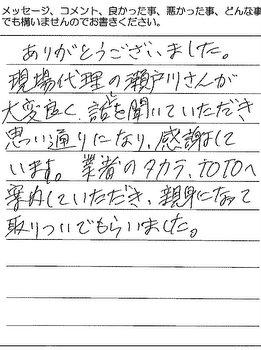 メッセージ、コメント、良かった事、悪かった事、どんな事
でも構いませんのでお書きください。
ありがとうございました。
現場代理の瀬戸川さんが
大変良く、話を聞いていただき
思い通りになり、感謝して
います。業者のタカラ、TOTOへ
案内していただき、親身になって
取りついでもらいました。